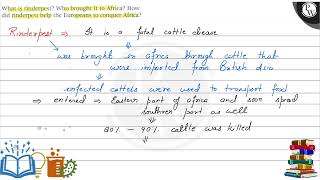 What is rinderpest? Who brought it to Africa? How
did rinderpest help the Europeans to conquer Africa?
Rinderpest ⇒ It is a fatal cattle disease
was brought in africa through cattle that
were imported from British Asia
infected cattels were used to transport food
⇒ entered ⇒ Eastern part of africa and soon spread
southern part as well
80% – 90% cattle was killed